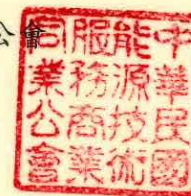 公會
中華民國
能源技術
服務商業
同業公會